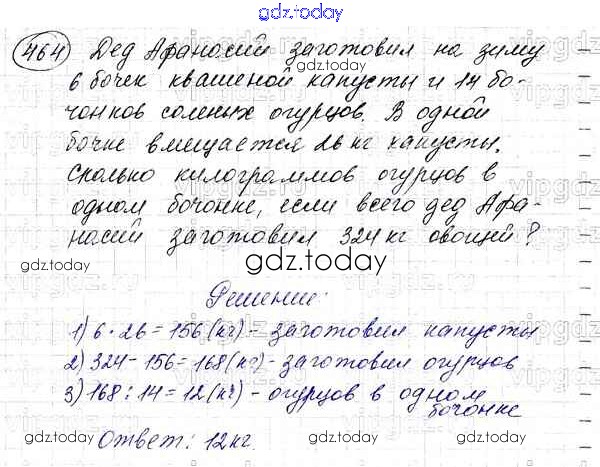 gdz.today
464 Дед Афанасий заготовил на зиму
6 бочек квашеной капусты и 14 бо-
чонков соленых огурцов. В одной
бочке вмещается 26 кг капусты.
Сколько килограммов огурцов в
одном бочонке, если всего дед Афа-
насий заготовил 324 кг овощей?
gdz.today
gdz.today
Решение:
1) 6 · 26 = 156 (кг) - заготовил капусты
2) 324 - 156 = 168 (кг) - заготовил огурцов
3) 168 : 14 = 12 (кг) - огурцов в одном
бочонке
Ответ: 12 кг.
gdz.today
gdz.today
gdz.today